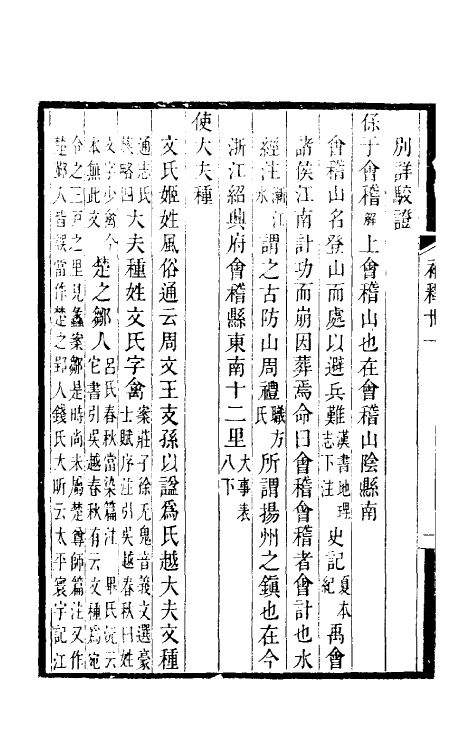 別詳駁證
係于會稽解上會稽山也在會稽山陰縣南
會稽山名登山而處以避兵難漢書地理志下注史記夏本紀禹會
諸侯江南計功而崩因葬焉命曰會稽會稽者會計也水
經注漸江水謂之古防山周禮職方氏所謂揚州之鎮也在今
浙江紹興府會稽縣東南十二里大事表八下
使大夫種
文氏姬姓風俗通云周文王支孫以謚爲氏越大夫文種
通志氏族略四大夫種姓文氏字禽案莊子徐无鬼音義文選豪士賦序注引吳越春秋曰姓
文字少禽今本無此文楚之鄒人呂氏春秋當染篇注畢氏沅云它書引吳越春秋有云文種爲宛
令之三戶之里見蠡案鄒是時尚未屬楚尊師篇注又作楚鄞人皆誤當作楚之郢人錢氏大昕云太平寰宇記江
補釋卅一
一